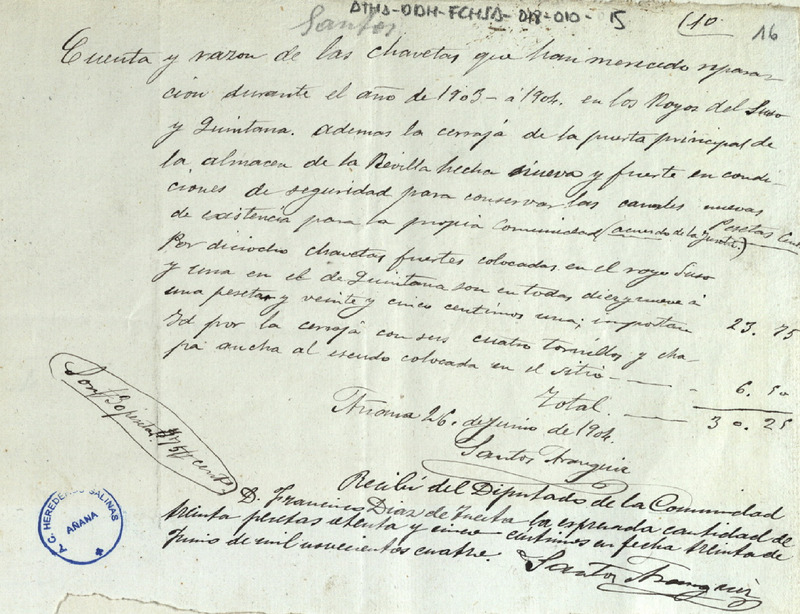 ATHA-DDH-FCHSA-078-010-15
Santos
(10
16
Cuenta y razon de las chavetas que han merecido repara-
cion durante el año de 1903- a 1904. en los Royos del Suso
y Quintana. ademas la cerraja de la puerta principal de
la almacen de la Revilla hecha nueva y fuerte en condi-
ciones de seguridad para conservar las canales nuevas
de existencia para la propia Comunidad (acuerdo de la Junta.)
Pesetas Cent
Por dieciocho chavetas fuertes colocadas en el royo Suso
y una en el de Quintana son en todas diez y nueve á
una peseta y veinte y cinco centimos una; importan 23.75
Id por la cerraja con sus cuatro tornillos y cha-
pa ancha al escudo colocada en el sitio 6.50
Total. 30.25
Añana 26. de Junio de 1904.
Santos Aranguiz
Son 30 pesetas cent
Recibí del Diputado de la Comunidad
D. Francisco Diaz de Tuesta la espresada cantidad de
treinta pesetas y cinco centimos en fecha treinta de
Junio de mil novecientos cuatro.
Santos Aranguiz
T. G. HEREDEROS SALINAS
AÑANA